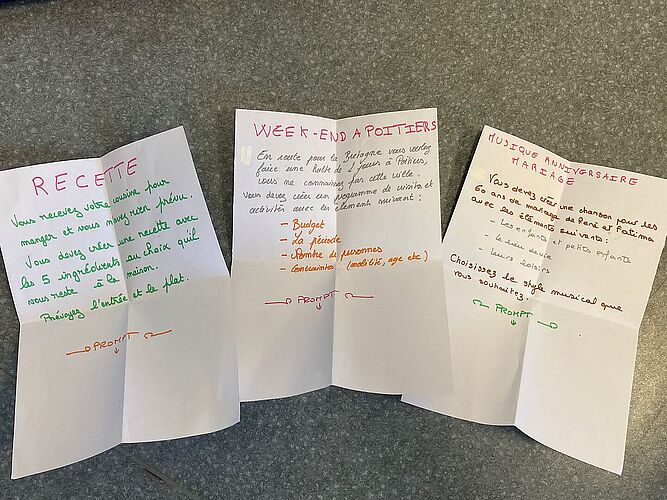 RECETTE
Vous recevez votre cousine pour
manger et vous n'avez rien prévu.
Vous devez créer une recette avec
les 5 ingrédients au choix qu'il
vous reste à la maison.
Prévoyez l'entrée et le plat.
PROMPT
WEEK-END A POITIERS
En route pour la Bretagne vous voulez
faire une halte de 2 jours à Poitiers,
vous ne connaissez pas cette ville.
Vous devez créer un programme de visites et
activités avec les éléments suivant :
- Budget
- La période
- Nombre de personnes
- Contraintes (mobilité, age etc)
PROMPT
MUSIQUE ANNIVERSAIRE
MARIAGE
Vous devez créer une chanson pour les
60 ans de mariage de René et Fatima
avec les éléments suivants :
- Les enfants et petits enfants
- Leurs loisirs
Choisissez le style musical que
vous souhaitez.
PROMPT